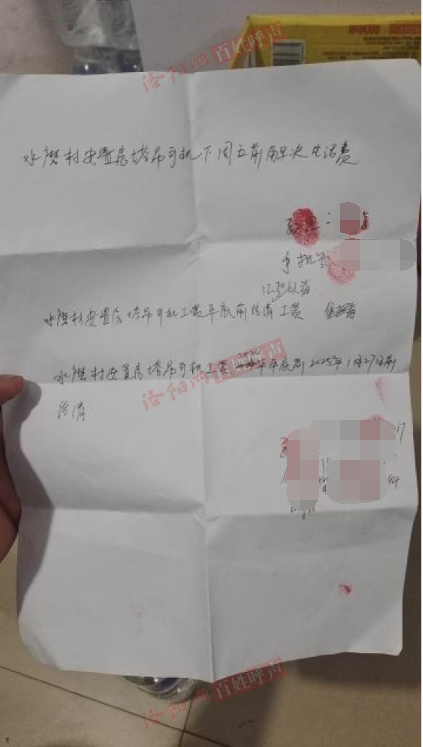 洛阳网 百姓呼声
水磨村安置房塔吊司机下周五前解决生活费
手机号
12.30以前
水磨村安置房塔吊司机工资年底前结清 工资
水磨村安置房塔吊司机工资 年底前 2025年1月27日前
洛阳网 百姓呼声
结清
17
洛阳网 百姓呼声